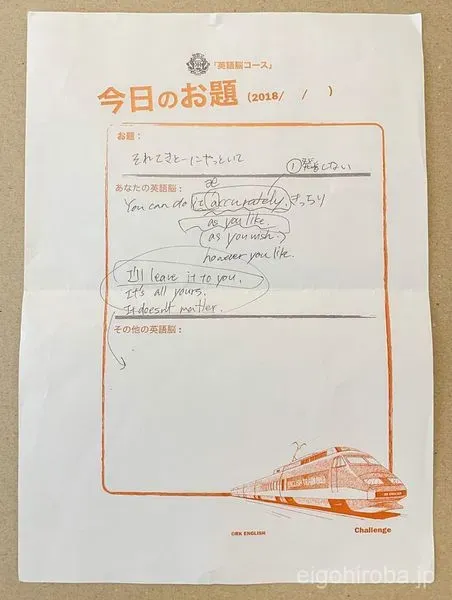 「英語脳コース」
今日のお題 (2018/ / )
お題：
それてきとーにやっといて
① 発音しない
あなたの英語脳：
æ
You can do it accurately. きっちり
as you like.
as you wish.
however you like.
I'll leave it to you.
It's all yours.
It doesn't matter.
その他の英語脳：
ENGLISH TRAIN
RK ENGLISH
©RK ENGLISH
Challenge
eigohiroba.jp